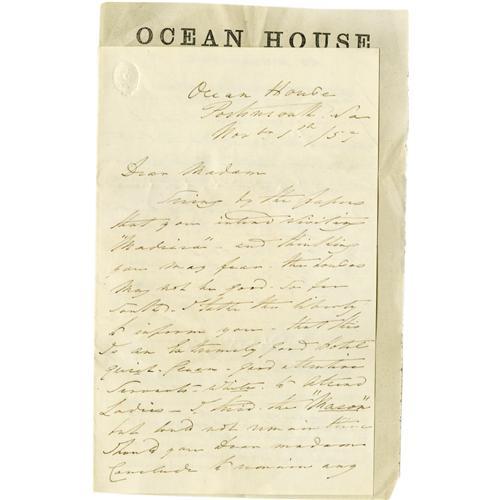 OCEAN HOUSE
Ocean House
Portsmouth Va
Nov 1st /57
Dear Madam
Seeing by the papers
that you intend visiting
"Madeira" - and thinking
you may fear the
May not be good so far
South - I take the liberty
to inform you - that this
Is an Extremely good Hotel
quiet - Clean - good attentive
Servants - White - to Attend
Ladies - I tried the "Macon"
but could not remain there
Should you Dear madam
Conclude to remain any